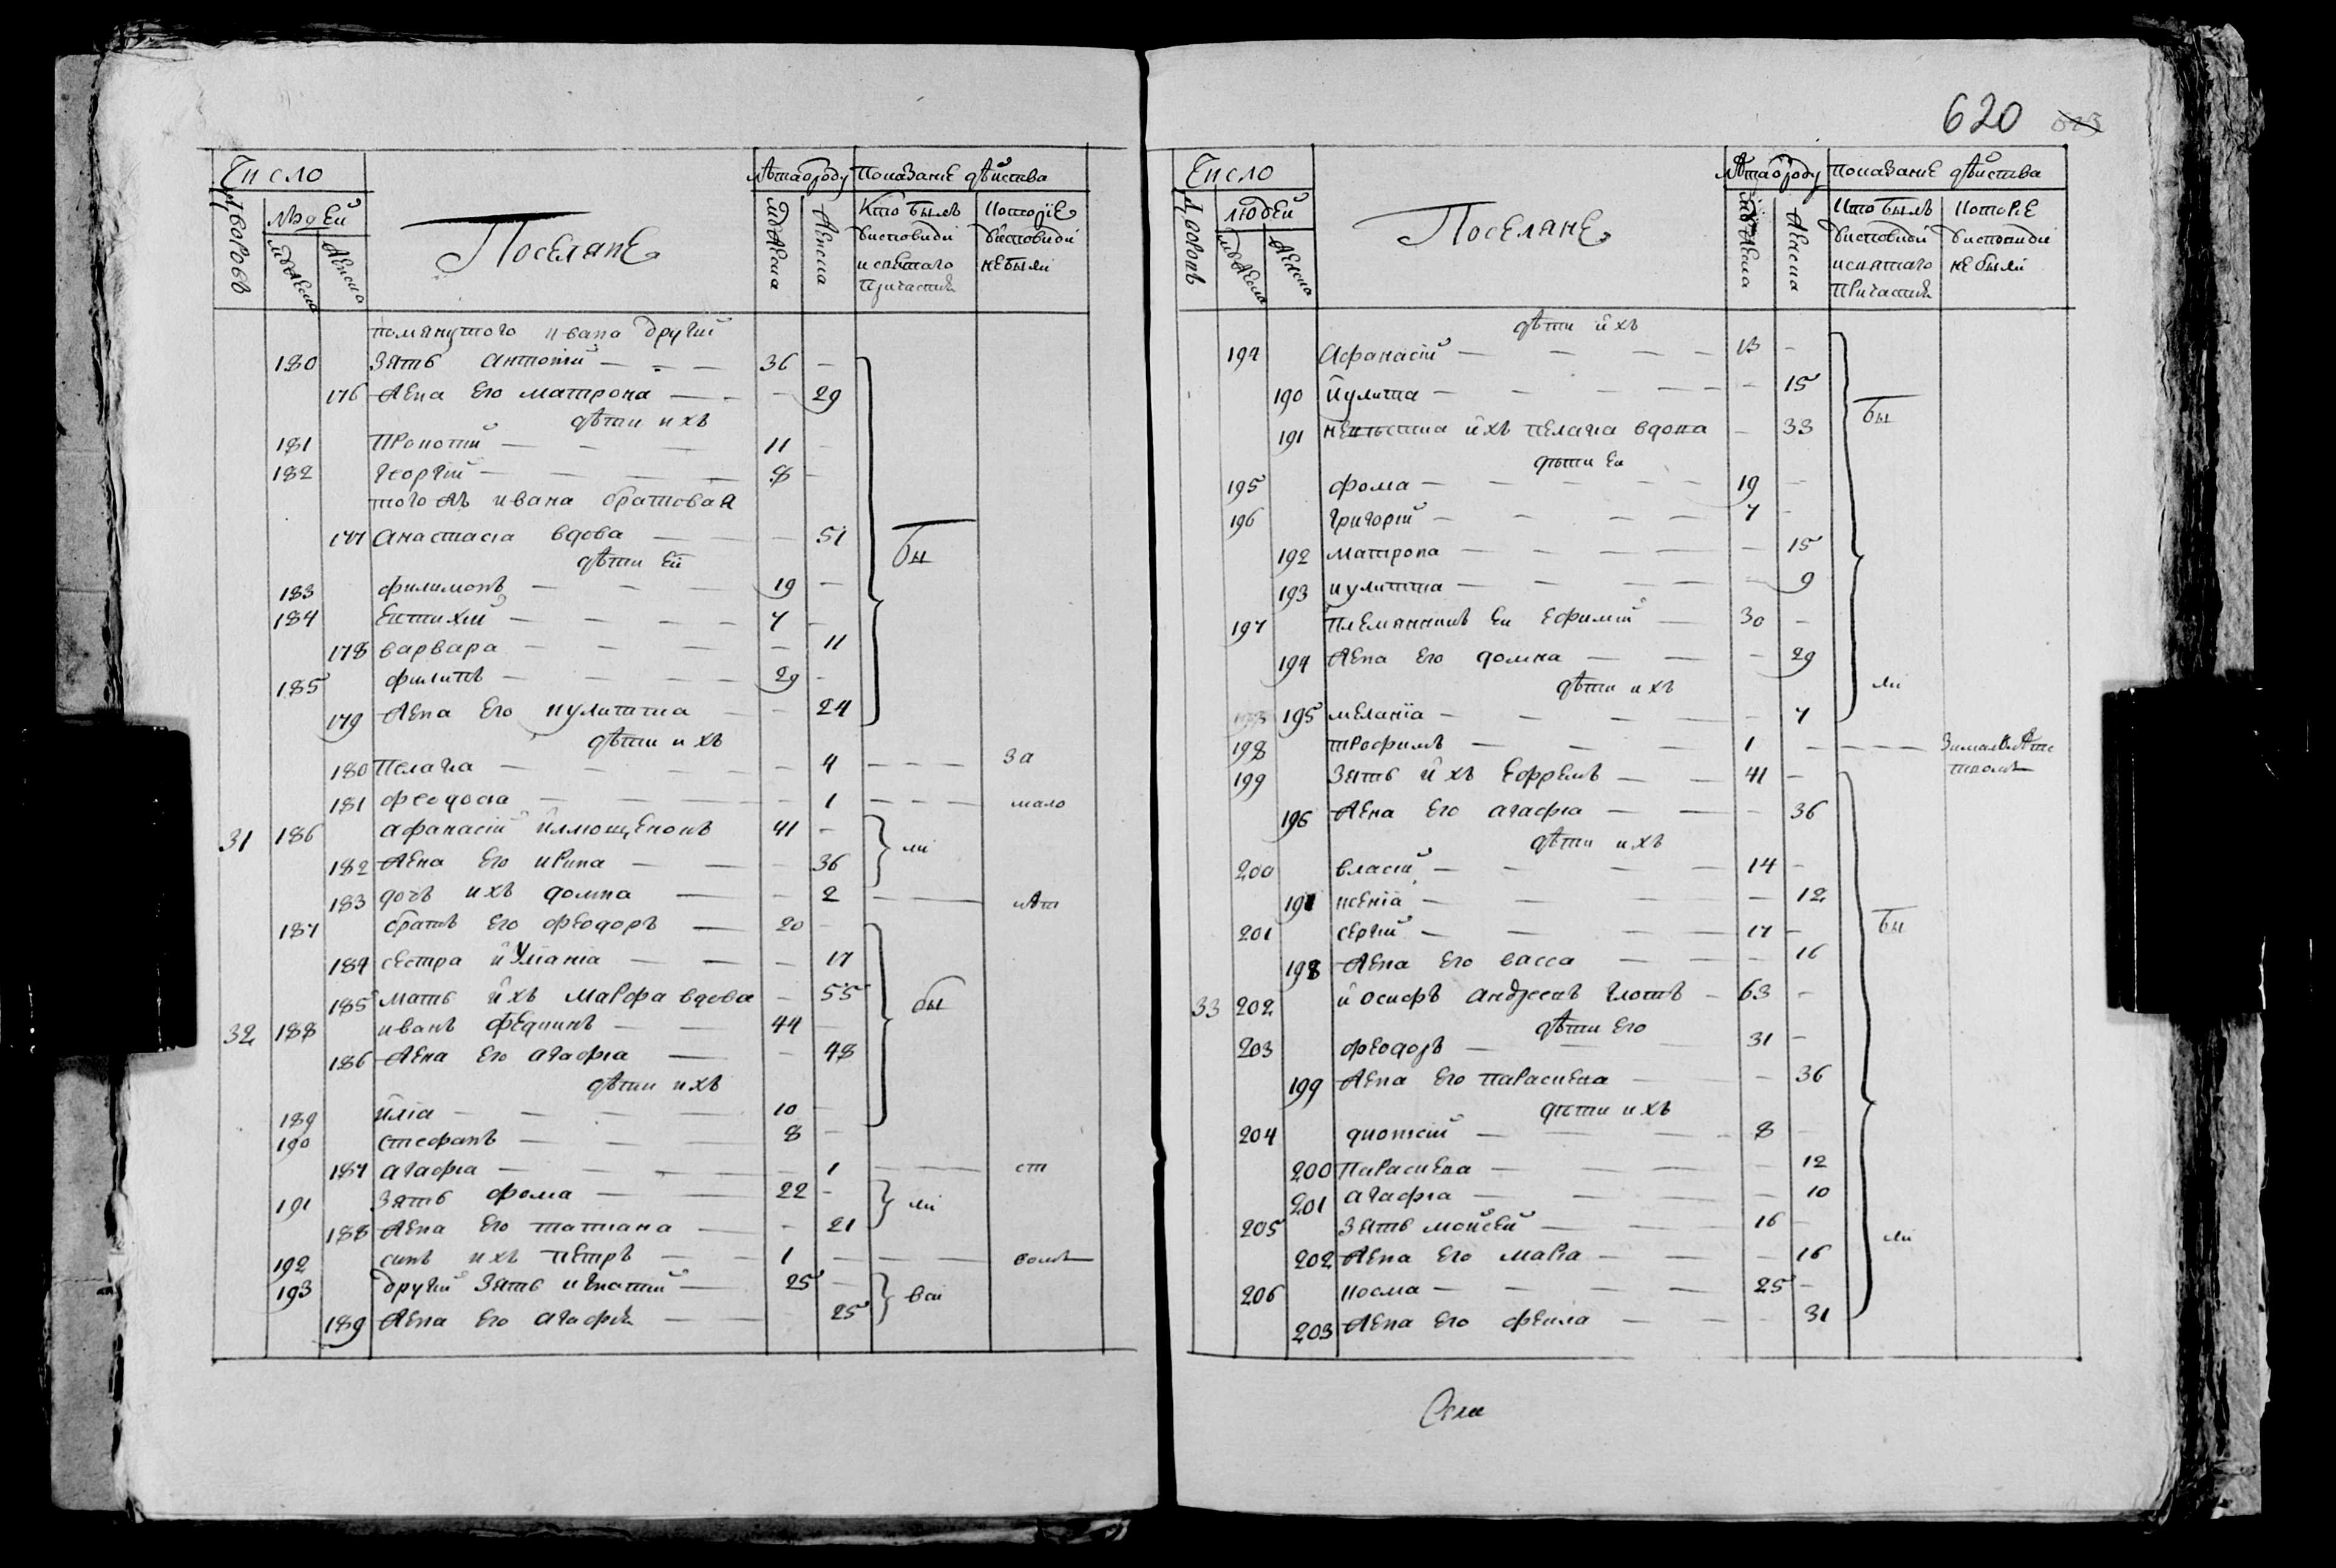 620
Число
Дворовъ
людей
мужеска
женска
Поселянѣ
Лѣта о роду
мужеска
женска
Показание дѣиства
Кто былъ висповиди и святаго причастия
Которіе висповиди небыли
помянутого ивана другий
180 Зять Антоній — — — 36 —
176 жена Его матрона — — — 29
дѣти ихъ
181 Прокопій — — — 11 —
182 Георгій — — — — 8 —
того жъ ивана братовая
177 Анастасіа вдова — — — 51
бы
дѣти Ей
183 филимонъ — — — 19 —
184 Евтихій — — — — 7 —
178 варвара — — — — 11
185 филипъ — — — — 29 —
179 жена Его иулитта — — 24
дѣти ихъ
180 Пелагиа — — — — — 4 — — — за
181 феодосіа — — — — 1 — — — мало
31 186 Афанасій 41 — ли
182 жена Его ирина — — — 36
183 дочъ ихъ домна — — 2 — — лѣт
187 братъ Его феодоръ — 20 —
184 сестра — — — 17
185 мать ихъ Марфа вдова — 55 бы
32 188 иванъ — — 44 —
186 жена Его агафиа — — 48
дѣти ихъ
189 иліа — — — — 10 —
190 стефанъ — — — 8 —
187 агафиа — — — — — 1 — — ст
191 Зять фома — — 22 —
ли
188 жена Его татиана — — 21
192 синъ ихъ петръ — — 1 — — — вомъ
193 другий зять игнатий — 25 —
ваи
189 жена Его агафия — — 25
Число
Дворовъ
людей
мужеска
женска
Поселянѣ
Лѣта о роду
мужеска
женска
Показаниє дѣйства
Кто былъ висповиди и святаго причастия
Которие висповиди не были
дѣти ихъ
194 Афанасій — — — — 13 —
190 иулита — — — — — — 15
бы
191 невѣстка ихъ пелагиа вдова — 33
дѣти Еи
195 фома — — — — — 19 —
196 григорій — — — — 7 —
192 матрона — — — — — 15
193 иулитта — — — — — 9
197 племянникъ Еи Ефимій — 30 —
194 жена Его домна — — — 29
дѣти ихъ
ли
195 меланіа — — — — — 7
198 трофимъ — — — — 1 — — — — За малолѣт
ствомъ
199 Зять ихъ Ефремъ — — 41 —
196 жена Его агафиа — — — 36
дѣти ихъ
200 власій — — — — 14 —
197 ксеніа — — — — — 12
бы
201 сергій — — — — 17 —
198 жена Его васса — — — 16
33 202 иосифъ андреевъ — 63 —
дѣти Его
203 феодоръ — — — 31 —
199 жена Его параскева — — 36
дѣти ихъ
204 — — — 8 —
200 Параскева — — — — 12
201 агафиа — — — — 10
205 Зять мойсей — — — 16 —
ли
202 жена Его мариа — — — 16
206 косма — — — — 25 —
203 жена Его фекла — — — 31